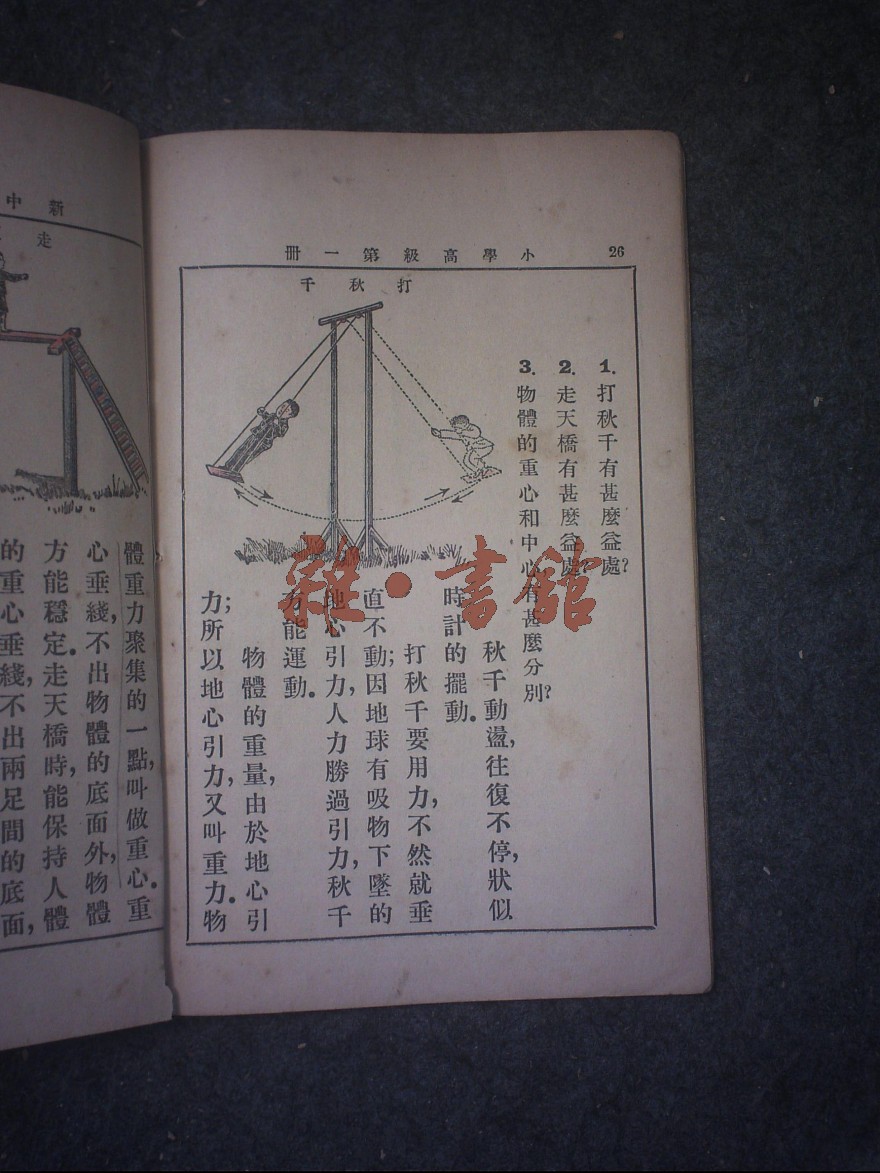 26 小學高級第一冊
1. 打秋千有甚麼益處?
2. 走天橋有甚麼益處?
3. 物體的重心和中心有甚麼分別?
打秋千
秋千動盪,往復不停,狀似
時計的擺動。
打秋千要用力,不然就垂
直不動;因地球有吸物下墜的
地心引力,人力勝過引力,秋千
方能運動。
物體的重量,由於地心引
力;所以地心引力,又叫重力。物
新中
走
體重力聚集的一點,叫做重心。重
心垂綫,不出物體的底面外,物體
方能穩定。走天橋時,能保持人體
的重心垂綫,不出兩足間的底面,
雜·書館